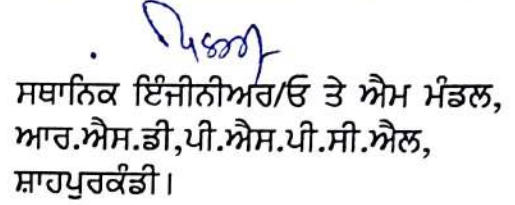 ਸਥਾਨਿਕ ਇੰਜੀਨੀਅਰ/ਓ ਤੇ ਐਮ ਮੰਡਲ,
ਆਰ.ਐਸ.ਡੀ,ਪੀ.ਐਸ.ਪੀ.ਸੀ.ਐਲ,
ਸ਼ਾਹਪੁਰਕੰਡੀ।